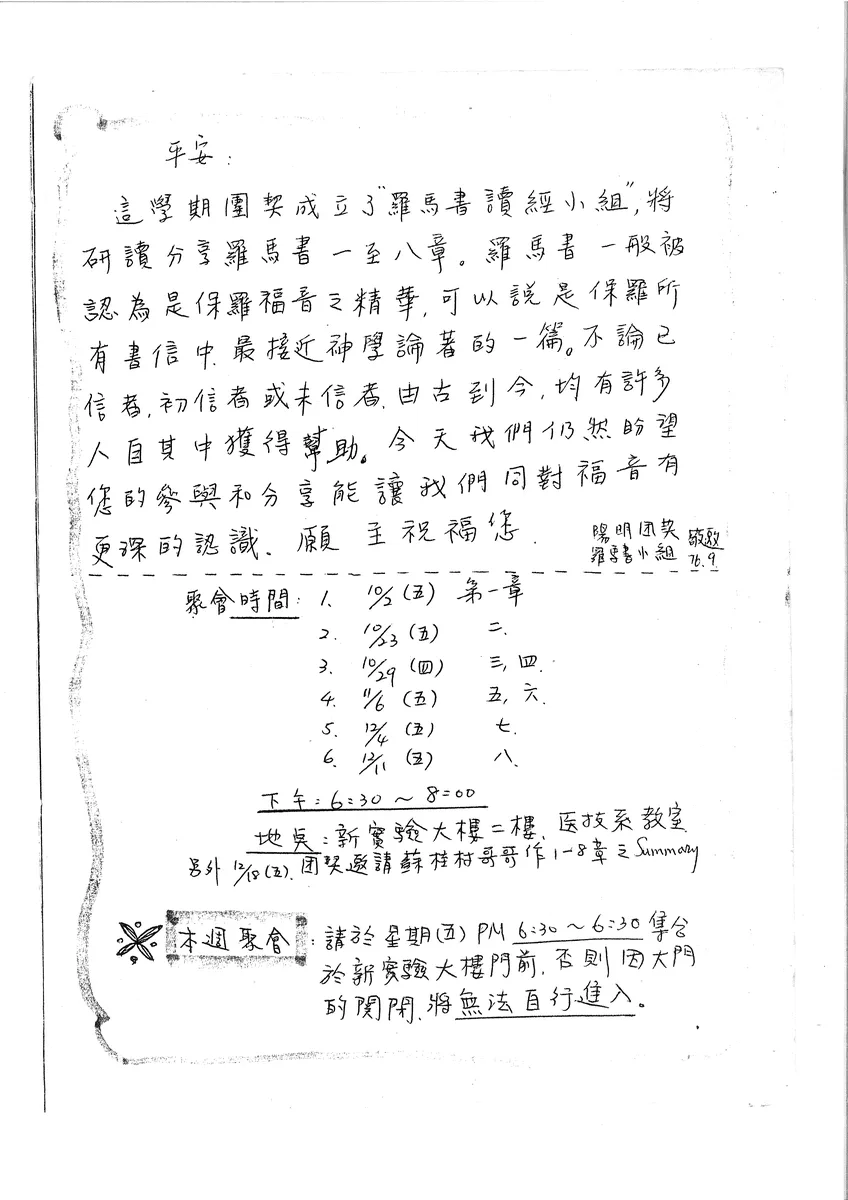 平安：
這學期團契成立了"羅馬書讀經小組",將
研讀分享羅馬書一至八章。羅馬書一般被
認為是保羅福音之精華,可以說是保羅所
有書信中最接近神學論著的一篇。不論已
信者,初信者或未信者,由古到今,均有許多
人自其中獲得幫助。今天我們仍然盼望
您的參與和分享能讓我們同對福音有
更深的認識、願主祝福您.
陽明团契
羅馬書小組
敬邀
76.9
聚會時間：1. 10/2 (五) 第一章
2. 10/23 (五) 二.
3. 10/29 (四) 三,四.
4. 11/6 (五) 五,六.
5. 12/4 (五) 七.
6. 12/11 (五) 八.
下午：6:30～8:00
地點：新實驗大樓二樓、医技系教室
另外12/18(五).团契邀請蘇桂村哥哥作1-8章之Summary
本週聚會：請於星期(五) PM 6:30～6:30集合
於新實驗大樓門前,否則因大門
的関閉、將無法自行進入。